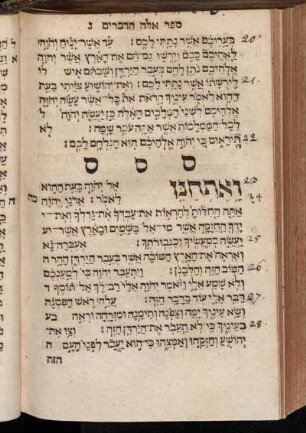 ספר אלה הדברים ג
20 בעריכם אשר נתתי לכם׃ עד אשר יניח יהוה
לאחיכם ככם וירשו גם הם את הארץ אשר יהוה
אלהיכם נתן להם בעבר הירדן ושבתם איש
21 לירשתו אשר נתתי לכם׃ ואת יהושוע צויתי בעת
ההוא לאמר עיניך הראת את כל אשר עשה יהוה
אלהיכם לשני המלכים האלה כן יעשה יהוה
לכל הממלכות אשר אתה עבר שמה׃ לא
22 תיראום כי יהוה אלהיכם הוא הנלחם לכם׃
ס ס ס
23 ואתחנן אל יהוה בעת ההוא
24 לאמר׃ אדני יהוה
אתה החלות להראות את עבדך את גדלך ואת
ידך החזקה אשר מי אל בשמים ובארץ אשר
25 יעשה כמעשיך וכגבורתך׃ אעברה נא
ואראה את הארץ הטובה אשר בעבר הירדן ההר
26 הטוב הזה והלבנן׃ ויתעבר יהוה בי למענכם
ולא שמע אלי ויאמר יהוה אלי רב לך אל תוסף
27 דבר אלי עוד בדבר הזה׃ עלה ראש הפסגה
ושא עיניך ימה וצפנה ותימנה ומזרחה וראה
28 בעיניך כי לא תעבר את הירדן הזה׃ וצו את
יהושע וחזקהו ואמצהו כי הוא יעבר לפני העם
הזה